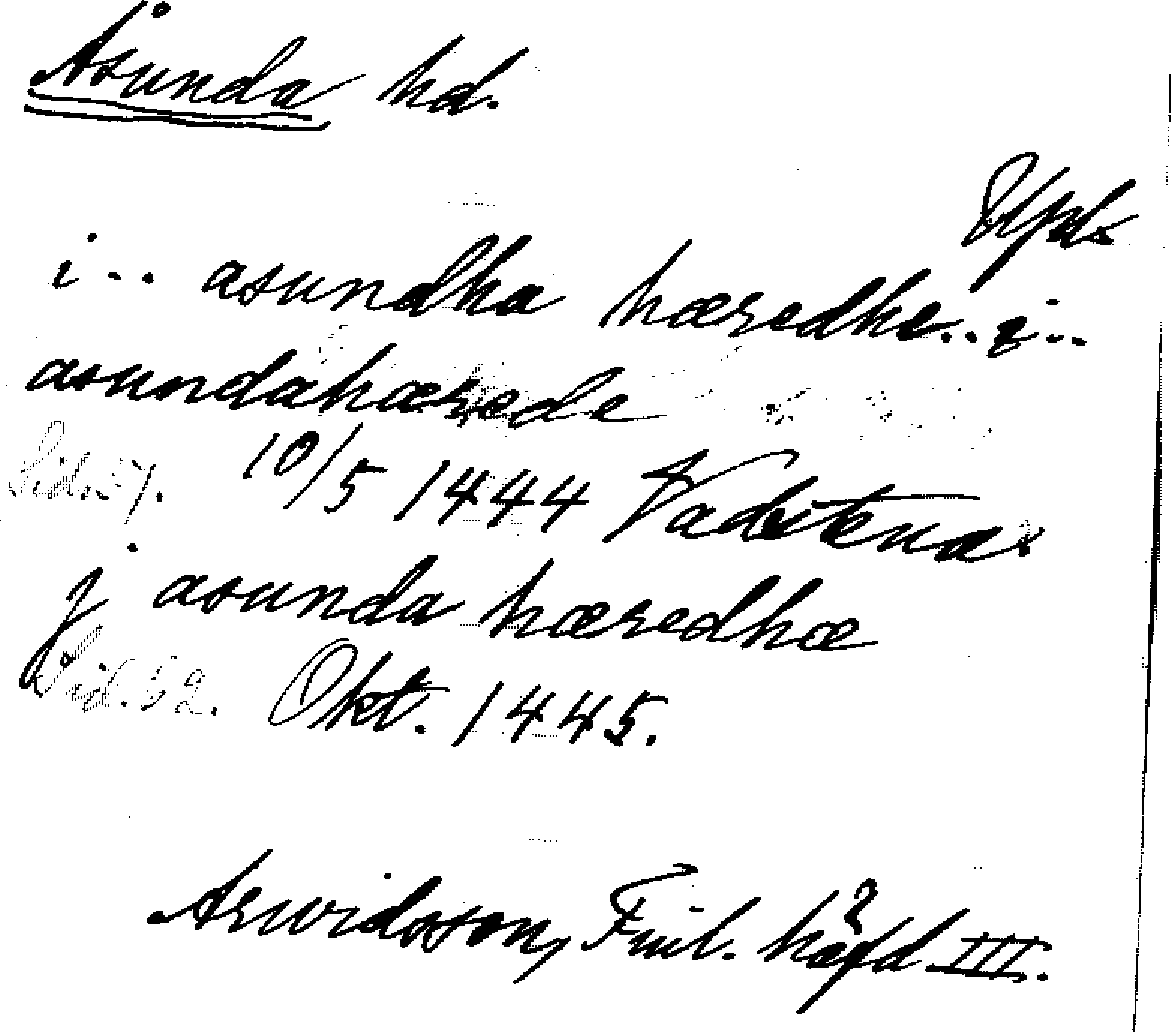 Åsunda hd.
Upl.
i.. asundha hæredhe.. i..
asundahærede
Sid. 57. 10/5 1444 Vadstena.
j asunda hæredhæ
Sid. 52. Okt. 1445.
Arwidsson, Finl. häfd III.